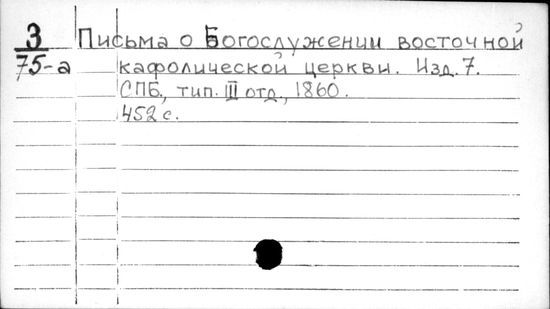 З Письма о Богослужении восточной
75-а кафолической церкви. Изд. 7.
СПБ, тип. III отд., 1860.
452 с.